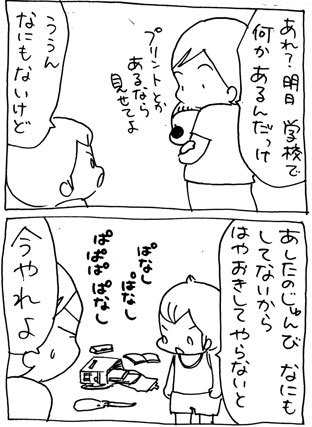 あれ？明日 学校で
何かあるんだっけ
プリントとか
あるなら
見せてよ
ううん
なにもないけど
あしたのじゅんび なにも
してないから
はやおきしてやらないと
ぱなし
ぱなし
ぱぱぱぱなし
今やれよ